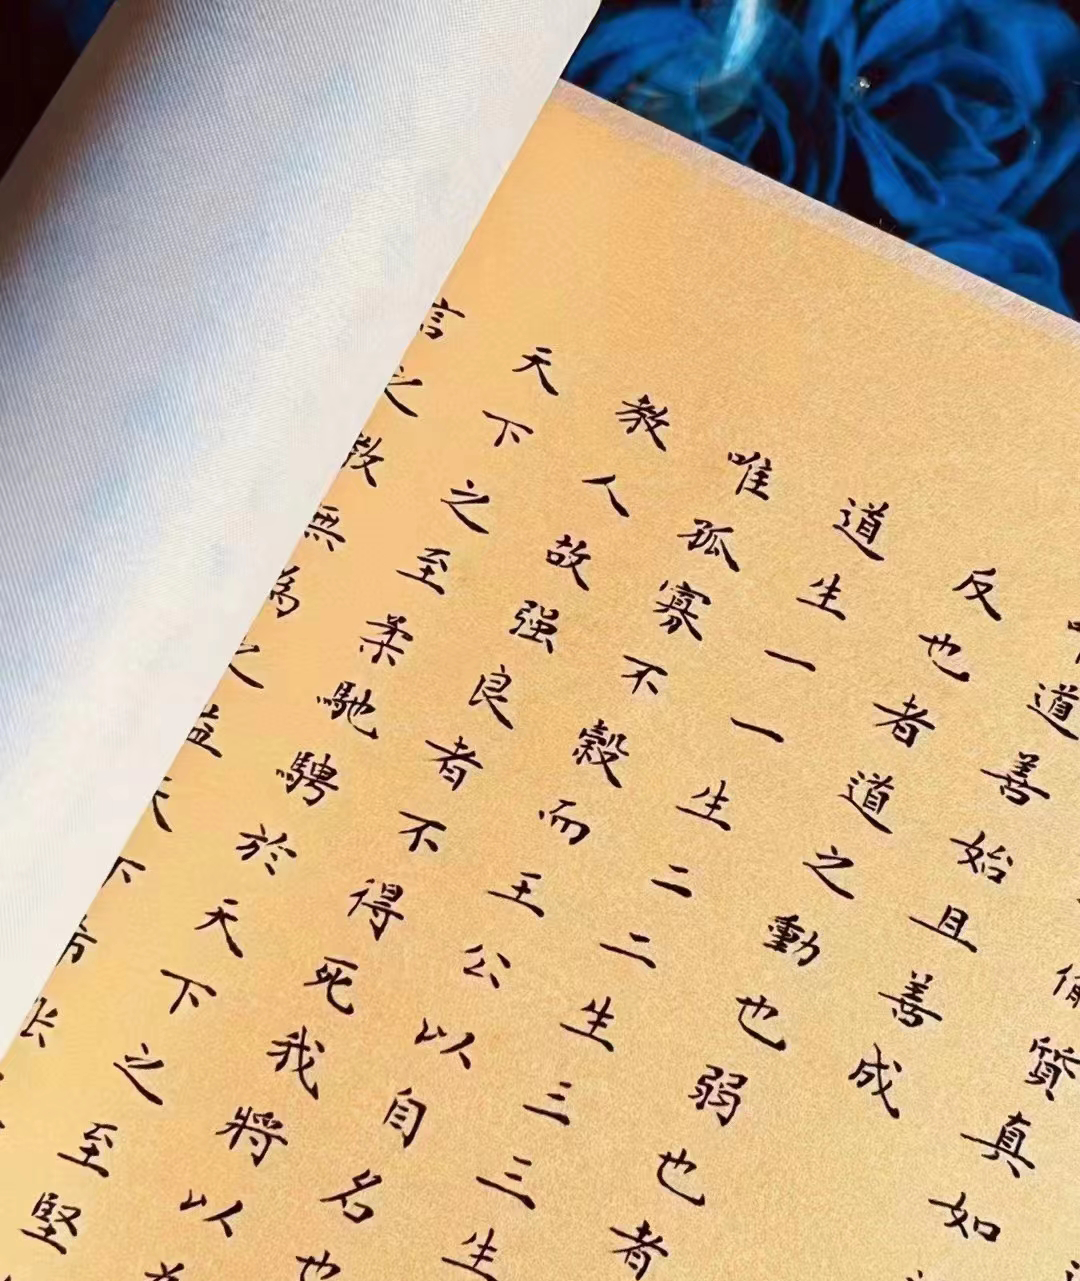 質真如
道善始且善成
反也者道之動也弱也者
道生一一生二二生三三生
唯孤寡不穀而王公以自名也
教人故强良者不得死我將以
天下之至柔馳騁於天下之至堅
言之教無為之益天下